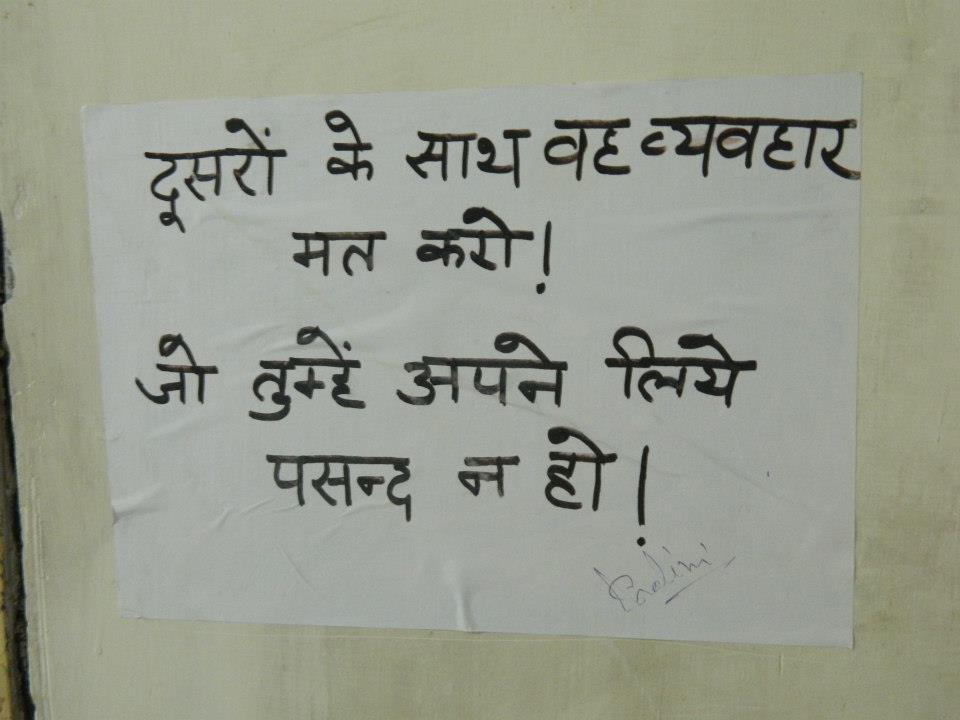 दूसरों के साथ वह व्यवहार
मत करो!
जो तुम्हें अपने लिये
पसन्द न हो!